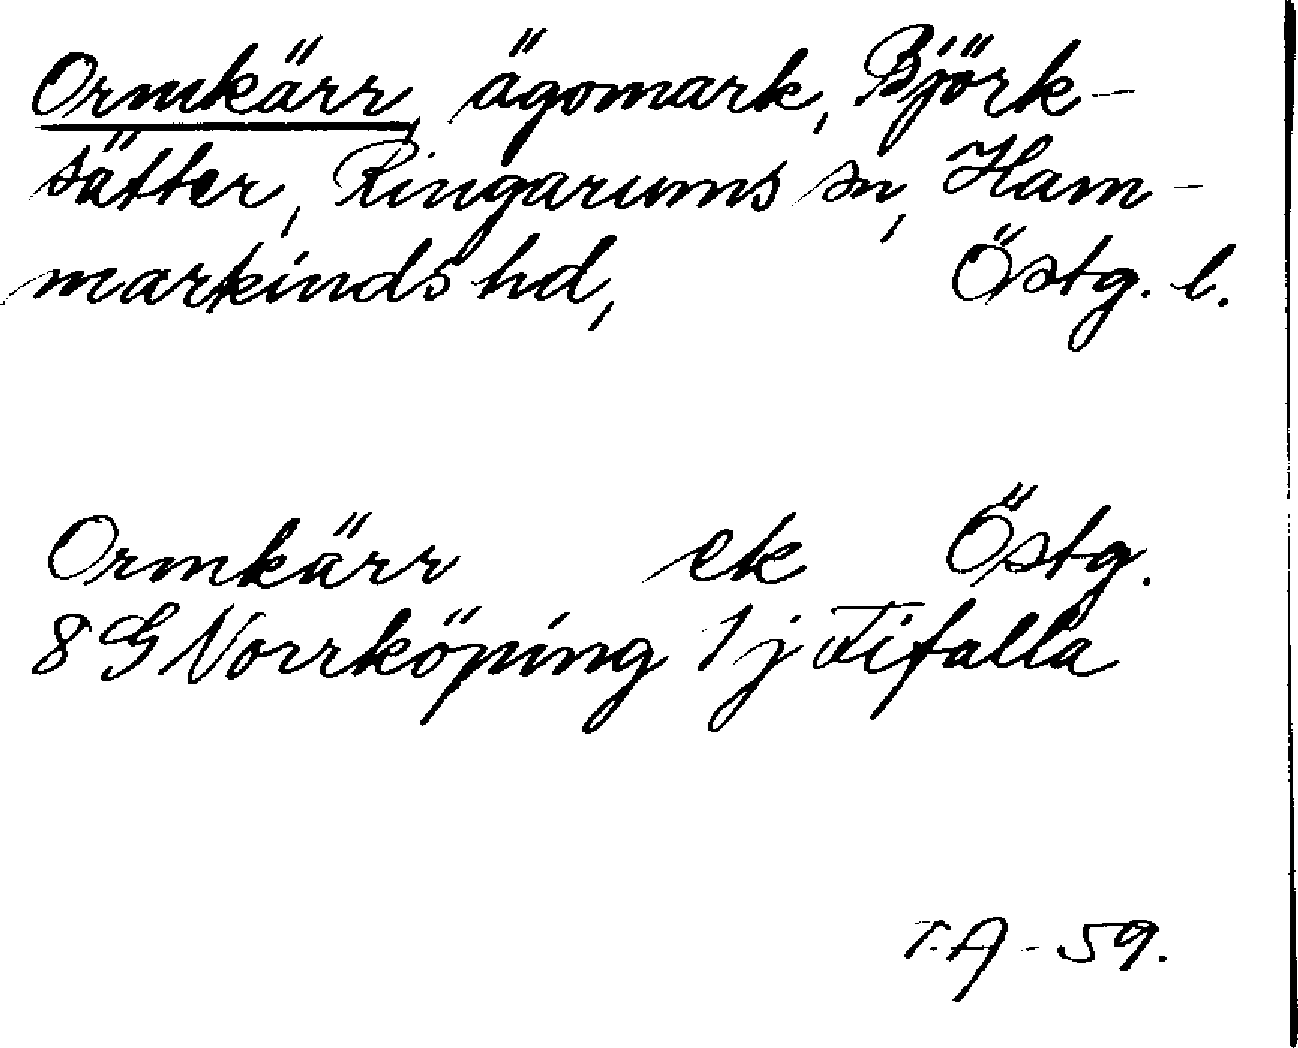 Ormkärr, ägomark, Björk-
sätter, Ringarums sn, Ham-
markinds hd, Östg. l.
Ormkärr ek Östg.
8 G Norrköping 1 j Fifalla
T.A - 59.